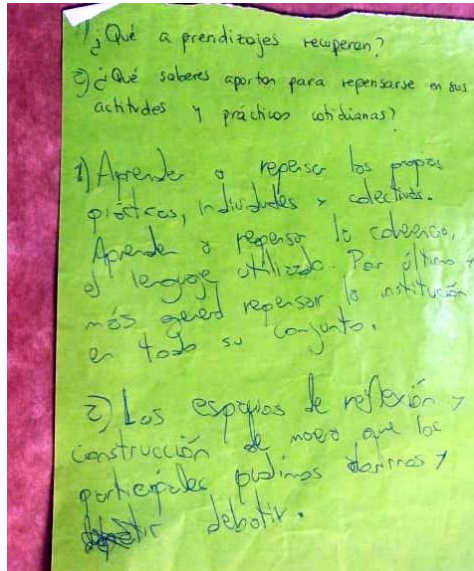 1) ¿Qué aprendizajes recuperan?
2) ¿Qué saberes aportan para repensarse en sus
actitudes y prácticas cotidianas?
1) Aprender a repensar las propias
prácticas, individuales y colectivas.
Aprender a repensar la
el lenguaje utilizado. Por último y
más general repensar la institución
en todo su conjunto.
2) Los espacios de reflexión y
construcción de que los
participantes pudimos darnos y
debatir.